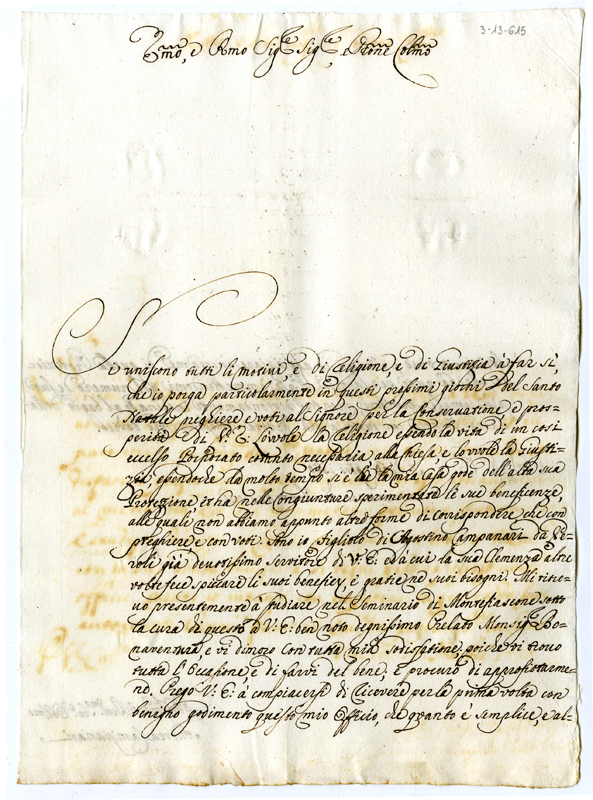 3-13-615
Emo, e Rmo Sig.re Sig.re, e Prone Colmo
Si uniscono tutti li motivi, e di Religione, e di Giustizia à far sì,
che io porga particolarmente in questi prossimi giorni del Santo
Natale preghiere e voti al Signore per la conservazione e pros-
perità di V: E: lo vvole la Religione essendo la vita di un così
eccelso Porporato cotanto necessaria alla Chiesa e lo vvole la Giusti-
zia, essendoche da molto tempo si è la mia Casa gode dell'alta sua
Protezzione, et ha nelle congiunture sperimentato li sue beneficenze,
alle quali non abbiamo appunto altre forme di corrispondere che con
preghiere e con voti. Sono io figliolo di Agostino Campanari da
voli già devotissimo servitore di V: E: ed à cui la sua Clemenza altre
volte fece spiccare li suoi beneficy e gratie ne suoi bisogni. Mi ritro-
vo presentemente à studiare nel Seminario di Montefiascone sotto
la cura di questo à V: E: ben noto degnissimo Prelato Monsig.re Bo-
naventura e vi dimoro con tutta mia sodisfatione, poiche vi trovo
tutta l'Occasione, e di farvi del bene, e procuro di approfittarme-
ne. Prego V: E: à compiacersi di ricevere per la prima volta con
benigno godimento questo mio Officio, che quanto è semplice, e al-